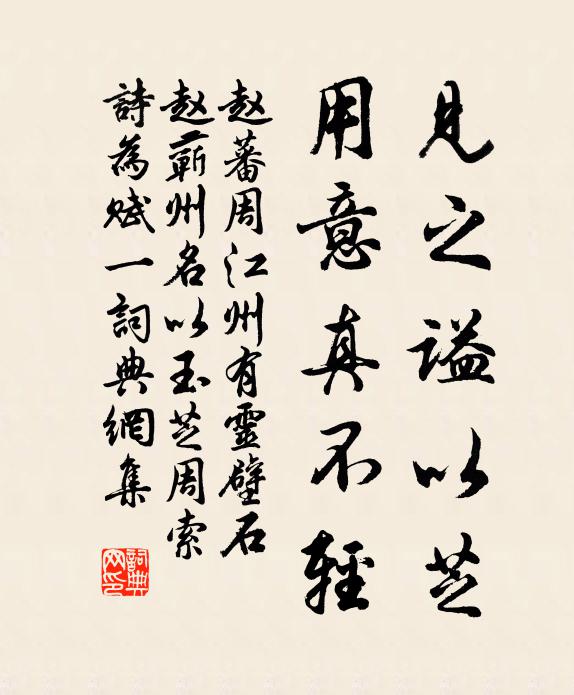 見之謚以芝
用意真不輕
赵蕃周江州有靈壁石
赵蘄州名以玉芝周索
詩為赋一詞典網集
詞典网印